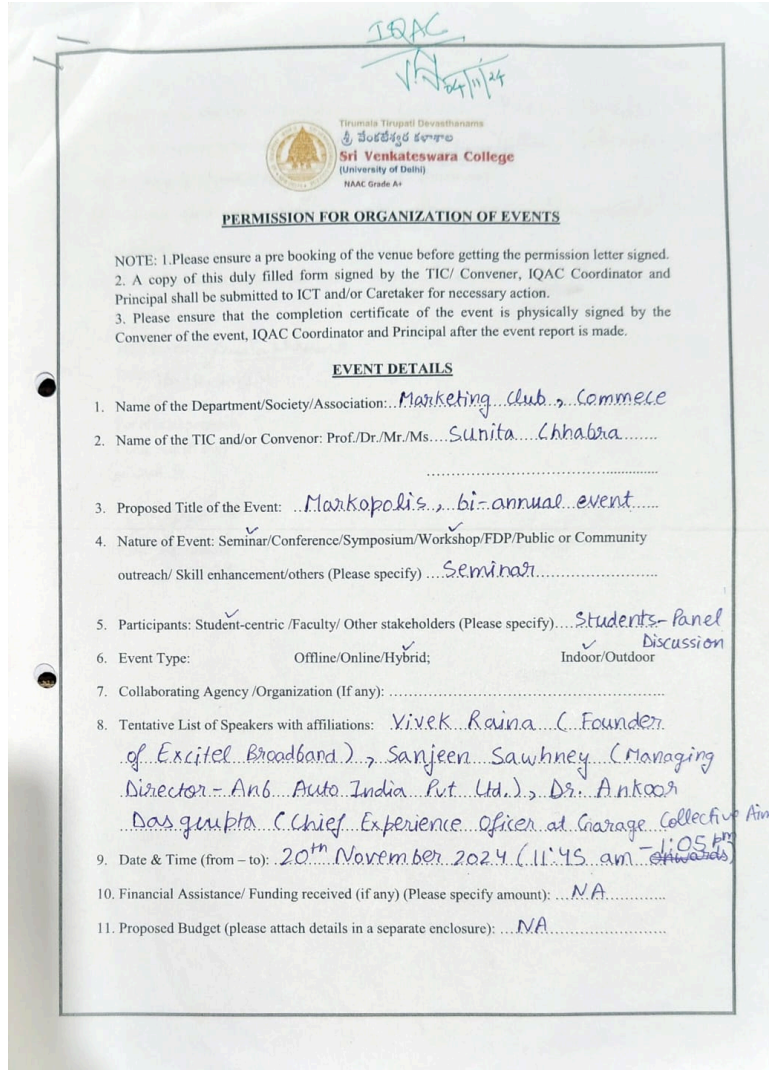 IQAC
04/11/24
Tirumala Tirupati Devasthanams
శ్రీ వేంకటేశ్వర కళాశాల
Sri Venkateswara College
(University of Delhi)
NAAC Grade A+
PERMISSION FOR ORGANIZATION OF EVENTS
NOTE: 1.Please ensure a pre booking of the venue before getting the permission letter signed.
2. A copy of this duly filled form signed by the TIC/ Convener, IQAC Coordinator and
Principal shall be submitted to ICT and/or Caretaker for necessary action.
3. Please ensure that the completion certificate of the event is physically signed by the
Convener of the event, IQAC Coordinator and Principal after the event report is made.
EVENT DETAILS
1. Name of the Department/Society/Association: Marketing Club, Commece
2. Name of the TIC and/or Convenor: Prof./Dr./Mr./Ms. Sunita Chhabra
3. Proposed Title of the Event: Markopolis, bi-annual event
4. Nature of Event: Seminar/Conference/Symposium/Workshop/FDP/Public or Community
outreach/ Skill enhancement/others (Please specify) Seminar
5. Participants: Student-centric /Faculty/ Other stakeholders (Please specify) Students-Panel
Discussion
6. Event Type: Offline/Online/Hybrid; Indoor/Outdoor
7. Collaborating Agency /Organization (If any):
8. Tentative List of Speakers with affiliations: Vivek Raina (Founder
of Excitel Broadband), Sanjeen Sawhney (Managing
Director - Anb Auto India Pvt Ltd.), Dr. Ankoor
Dasgupta (Chief Experience Oficer at Garage Collective Aim
9. Date & Time (from – to): 20th November 2024 (11:45 am - 1:05 pm onwards)
10. Financial Assistance/ Funding received (if any) (Please specify amount): NA
11. Proposed Budget (please attach details in a separate enclosure): NA